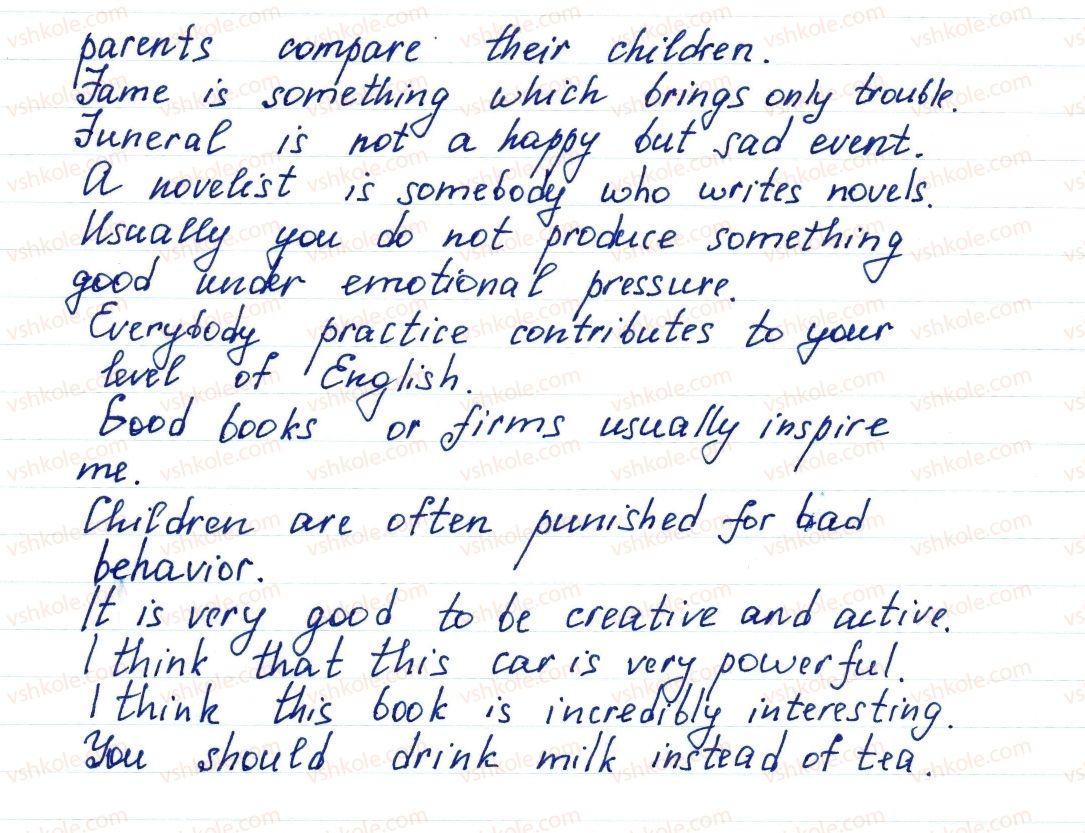 parents compare their children.
Fame is something which brings only trouble.
Funeral is not a happy but sad event.
A novelist is somebody who writes novels.
Usually you do not produce something
good under emotional pressure.
Everybody practice contributes to your
level of English.
Good books or firms usually inspire
me.
Children are often punished for bad
behavior.
It is very good to be creative and active.
I think that this car is very powerful.
I think this book is incredibly interesting.
You should drink milk instead of tea.